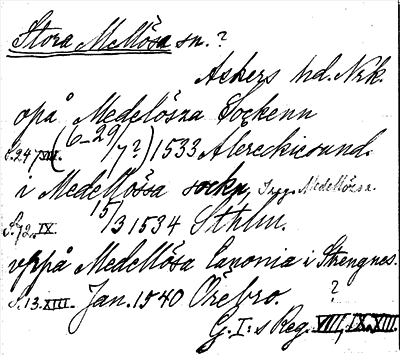 Stora Mellösa sn.?
Askers hd. Nrk.
opå Medelösza Sockenn
S.247 VIII. (6-29/7?) 1533 Alereckiesund.
i Medellössa sockn,
S.72. IX. 15/3 1534 Sthlm.
vppå Medellösa Canonia i Strengnes.
S.13. XIII. Jan. 1540 Örebro. ?
G. I:s Reg. VIII, IX, XIII.